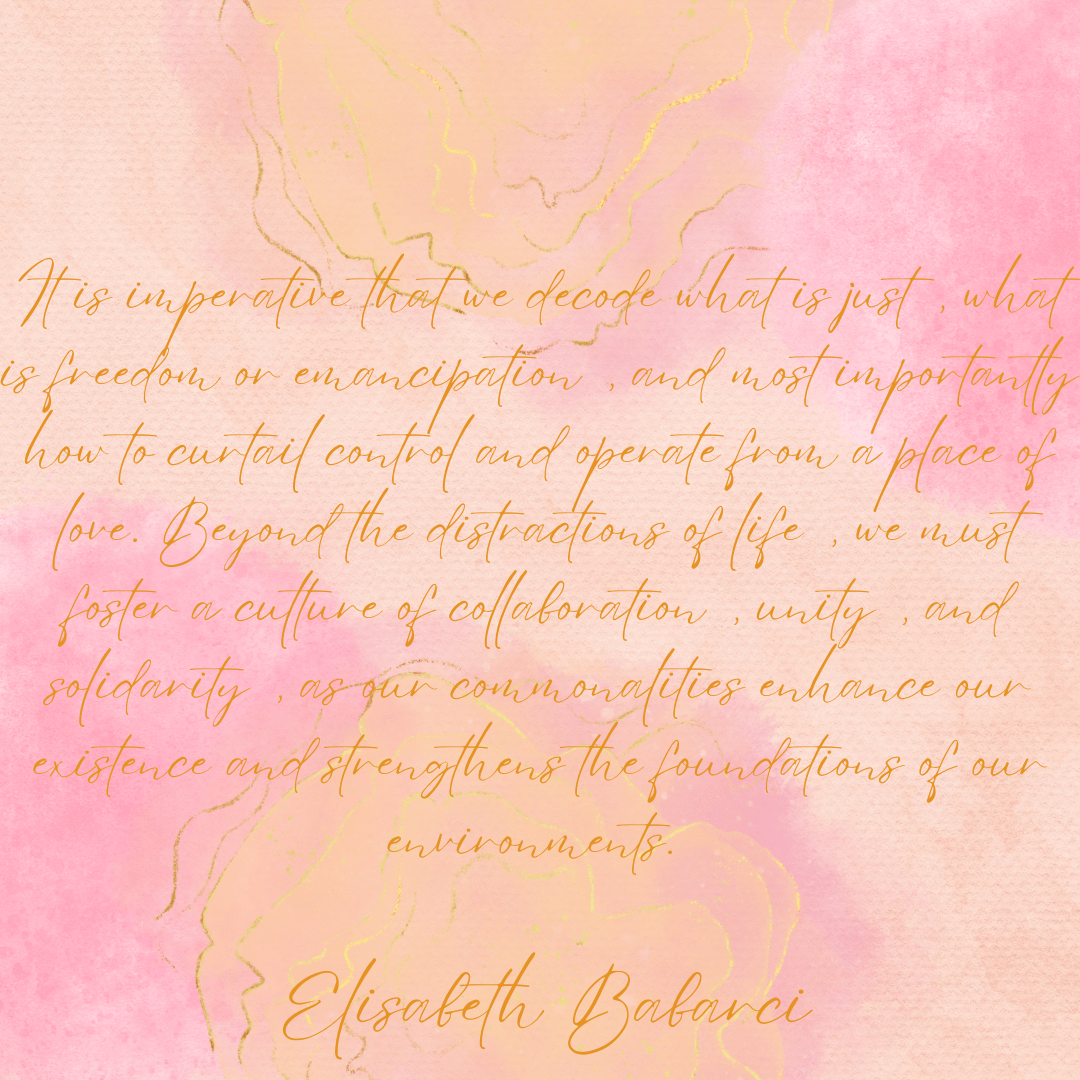 It is imperative that we decode what is just , what
is freedom or emancipation , and most importantly
how to curtail control and operate from a place of
love. Beyond the distractions of life , we must
foster a culture of collaboration , unity , and
solidarity , as our commonalities enhance our
existence and strengthens the foundations of our
environments.
Elisabeth Babarci